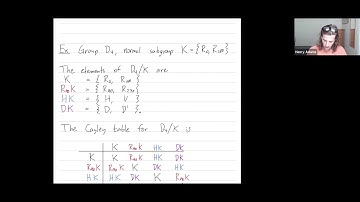 Ex Group D4, normal subgroup K = {R0, R180}
The elements of D4/K are:
K = {R0, R180}
R90K = {R90, R270}
HK = {H, V}
DK = {D, D'}.
The Cayley table for D4/K is
K R90K HK DK
K K R90K HK DK
R90K R90K K DK HK
HK HK DK K R90K
Henry Adams